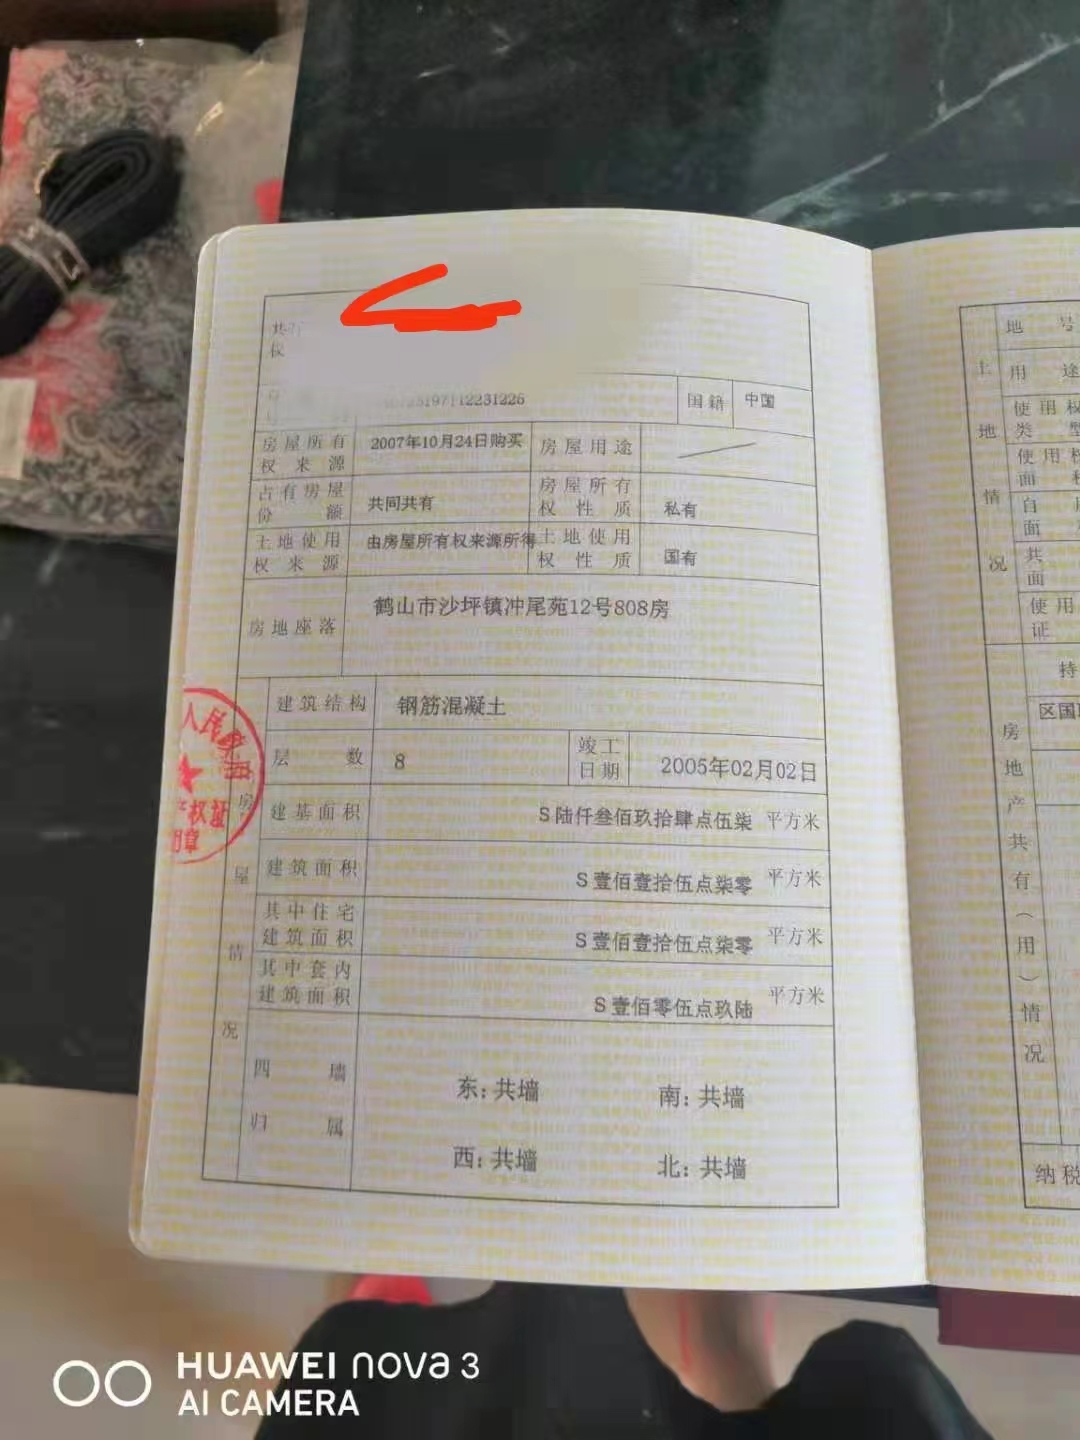 共有
权
25197112231226
国籍
中国
房屋所有
权来源
2007年10月24日购买
房屋用途
占有房屋
份额
共同共有
房屋所有
权性质
私有
土地使用
权来源
由房屋所有权来源所得
土地使用
权性质
国有
房地座落
鹤山市沙坪镇冲尾苑12号808房
房屋情况
建筑结构
钢筋混凝土
层数
8
竣工
日期
2005年02月02日
建基面积
S陆仟叁佰玖拾肆点伍柒 平方米
建筑面积
S壹佰壹拾伍点柒零 平方米
其中住宅
建筑面积
S壹佰壹拾伍点柒零 平方米
其中套内
建筑面积
S壹佰零伍点玖陆 平方米
四墙
归属
东:共墙
南:共墙
西:共墙
北:共墙
人民政府
权证
用章
土地情况
地号
用途
使用权
类型
使用权
面积
自
面
共
面
使用
证
房地产共有(用)情况
持
区国
纳税
HUAWEI nova 3
AI CAMERA